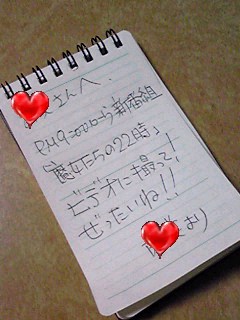 さんへ.
PM9:00から新番組
「魔女たちの22時」
ビデオに撮って!
ぜったいね!!
より